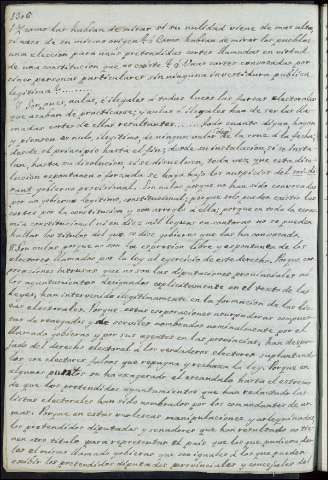 1306
¿Y como las habian de mirar si su nulidad viene de mas alto,
si nace de su mismo origen? ¿Como habian de mirar los pueblos
una eleccion para unas pretendidas cortes llamadas en virtud
de una constitucion que no existe? ¿Unas cortes convocadas por
cinco personas particulares sin ninguna investidura publica
legitima?
nulas, e ilegales a todas luces las farsas electorales
que acaban de practicarse; y nulas e ilegales han de ser las
madas cortes de ellas resultantes. Todo cuanto digan, hagan
y piensen es nulo, ilegitimo, de ningun valor desde la cruz a la fecha;
desde el principio hasta el fin; desde su instalacion, si se insta-
lan, hasta su disolucion, si se disuelven, toda vez que esta diso-
lucion espontanea o forzada se haga bajo los auspicios del
gobierno provisional. Son nulas porque no han sido convocadas
por un gobierno legitimo, constitucional; porque solo pueden existir las
cortes por la constitucion y con arreglo a ella; porque en toda la econo-
mia constitucional ni en diez mil leguas en contorno no se pueden
hallar los titulos del que se dice gobierno que las ha convocado.
Son nulas porque no son la espresion libre y espontanea de los
electores llamados por la ley al ejercicio de este derecho. Porque cor-
poraciones intrusas que no son las diputaciones provinciales ni
los ayuntamientos designados esplicitamente en el testo de las
leyes, han intervenido ilegitimamente en la formacion de las lis-
tas electorales. Porque estas corporaciones usurpadoras compues-
tas de renegados y de serviles nombrados nominalmente por el
llamado gobierno y por sus agentes en las provincias, han despo-
jado del derecho electoral a los verdaderos electores suplantando-
los con electores falsos que repugna y rechaza la ley. Porque en
algunos puntos se ha exagerado el escandalo hasta el estremo
de que los pretendidos ayuntamientos que han redactado las
listas electorales han sido nombrados por los comandantes de ar-
mas. Porque en estas molescas manipulaciones y artequinadas,
los pretendidos diputados y senadores que han resultado no tie-
nen otro titulo para representar al pais que los que pudiera dar-
les el mismo llamado gobierno que son iguales a los que pueden
exibir los pretendidos diputados provinciales y concejales del